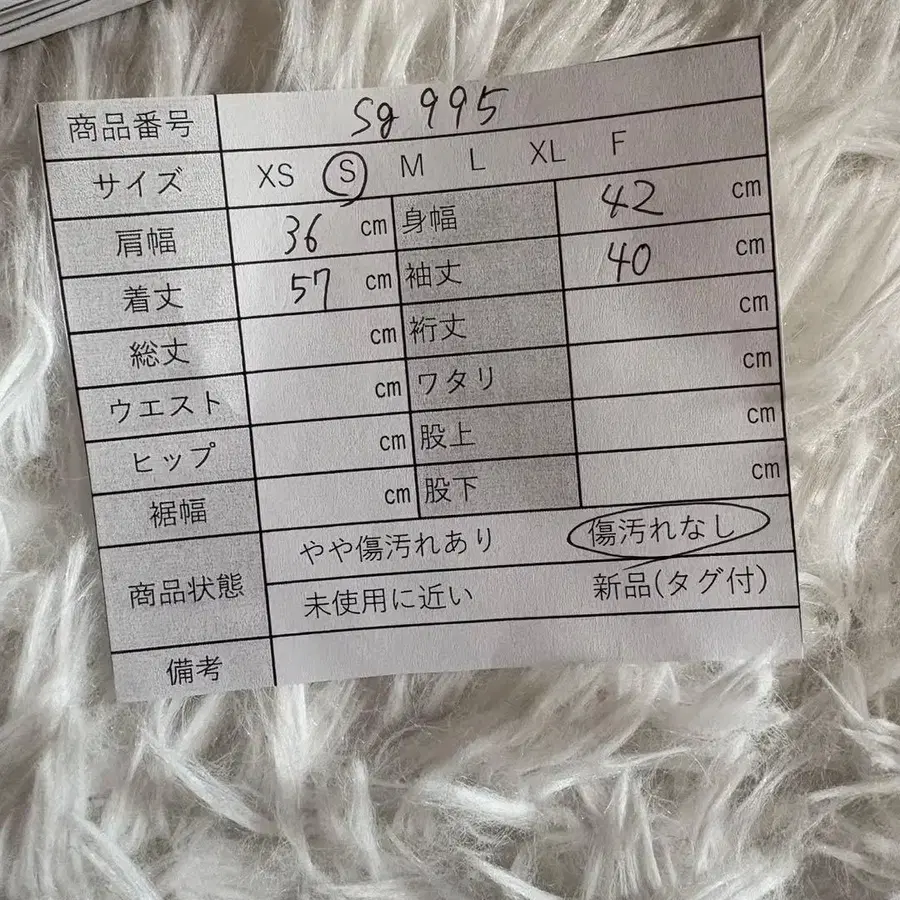 商品番号 sg 995
サイズ XS S M L XL F
肩幅 36 cm 身幅 42 cm
着丈 57 cm 袖丈 40 cm
総丈 cm 裄丈 cm
ウエスト cm ワタリ cm
ヒップ cm 股上 cm
裾幅 cm 股下 cm
商品状態 やや傷汚れあり 傷汚れなし
未使用に近い 新品(タグ付)
備考